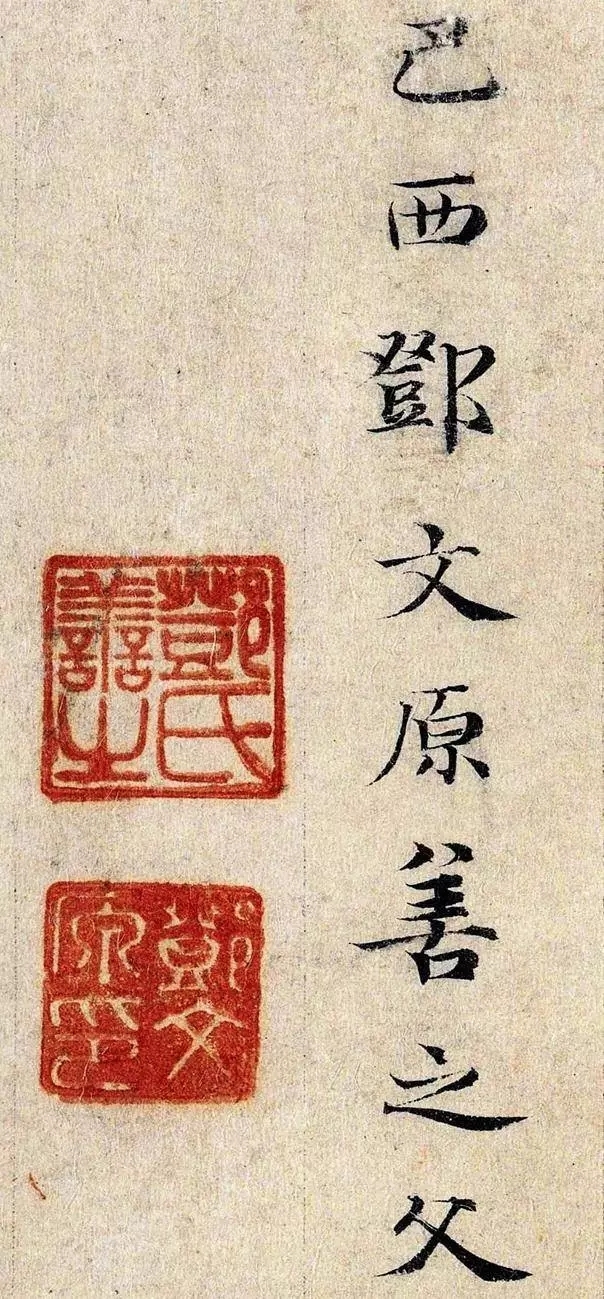 巴西鄧文原善之父
鄧氏善之
鄧文原印